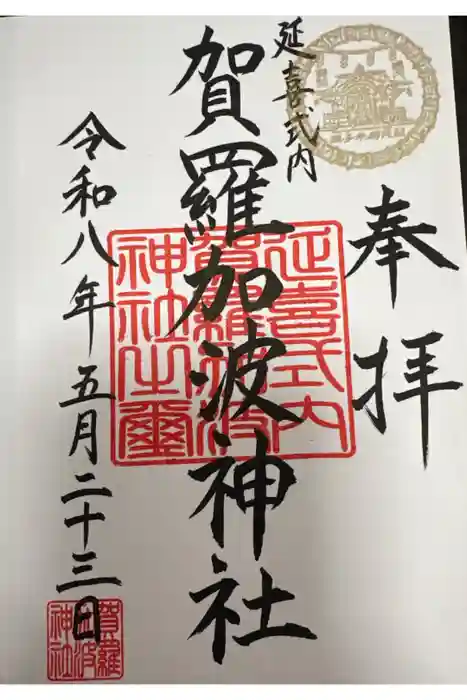 奉拝
延喜式内
賀羅加波神社
令和八年五月二十三日
延喜式内
賀羅加波
神社之璽
賀羅
加波
神社